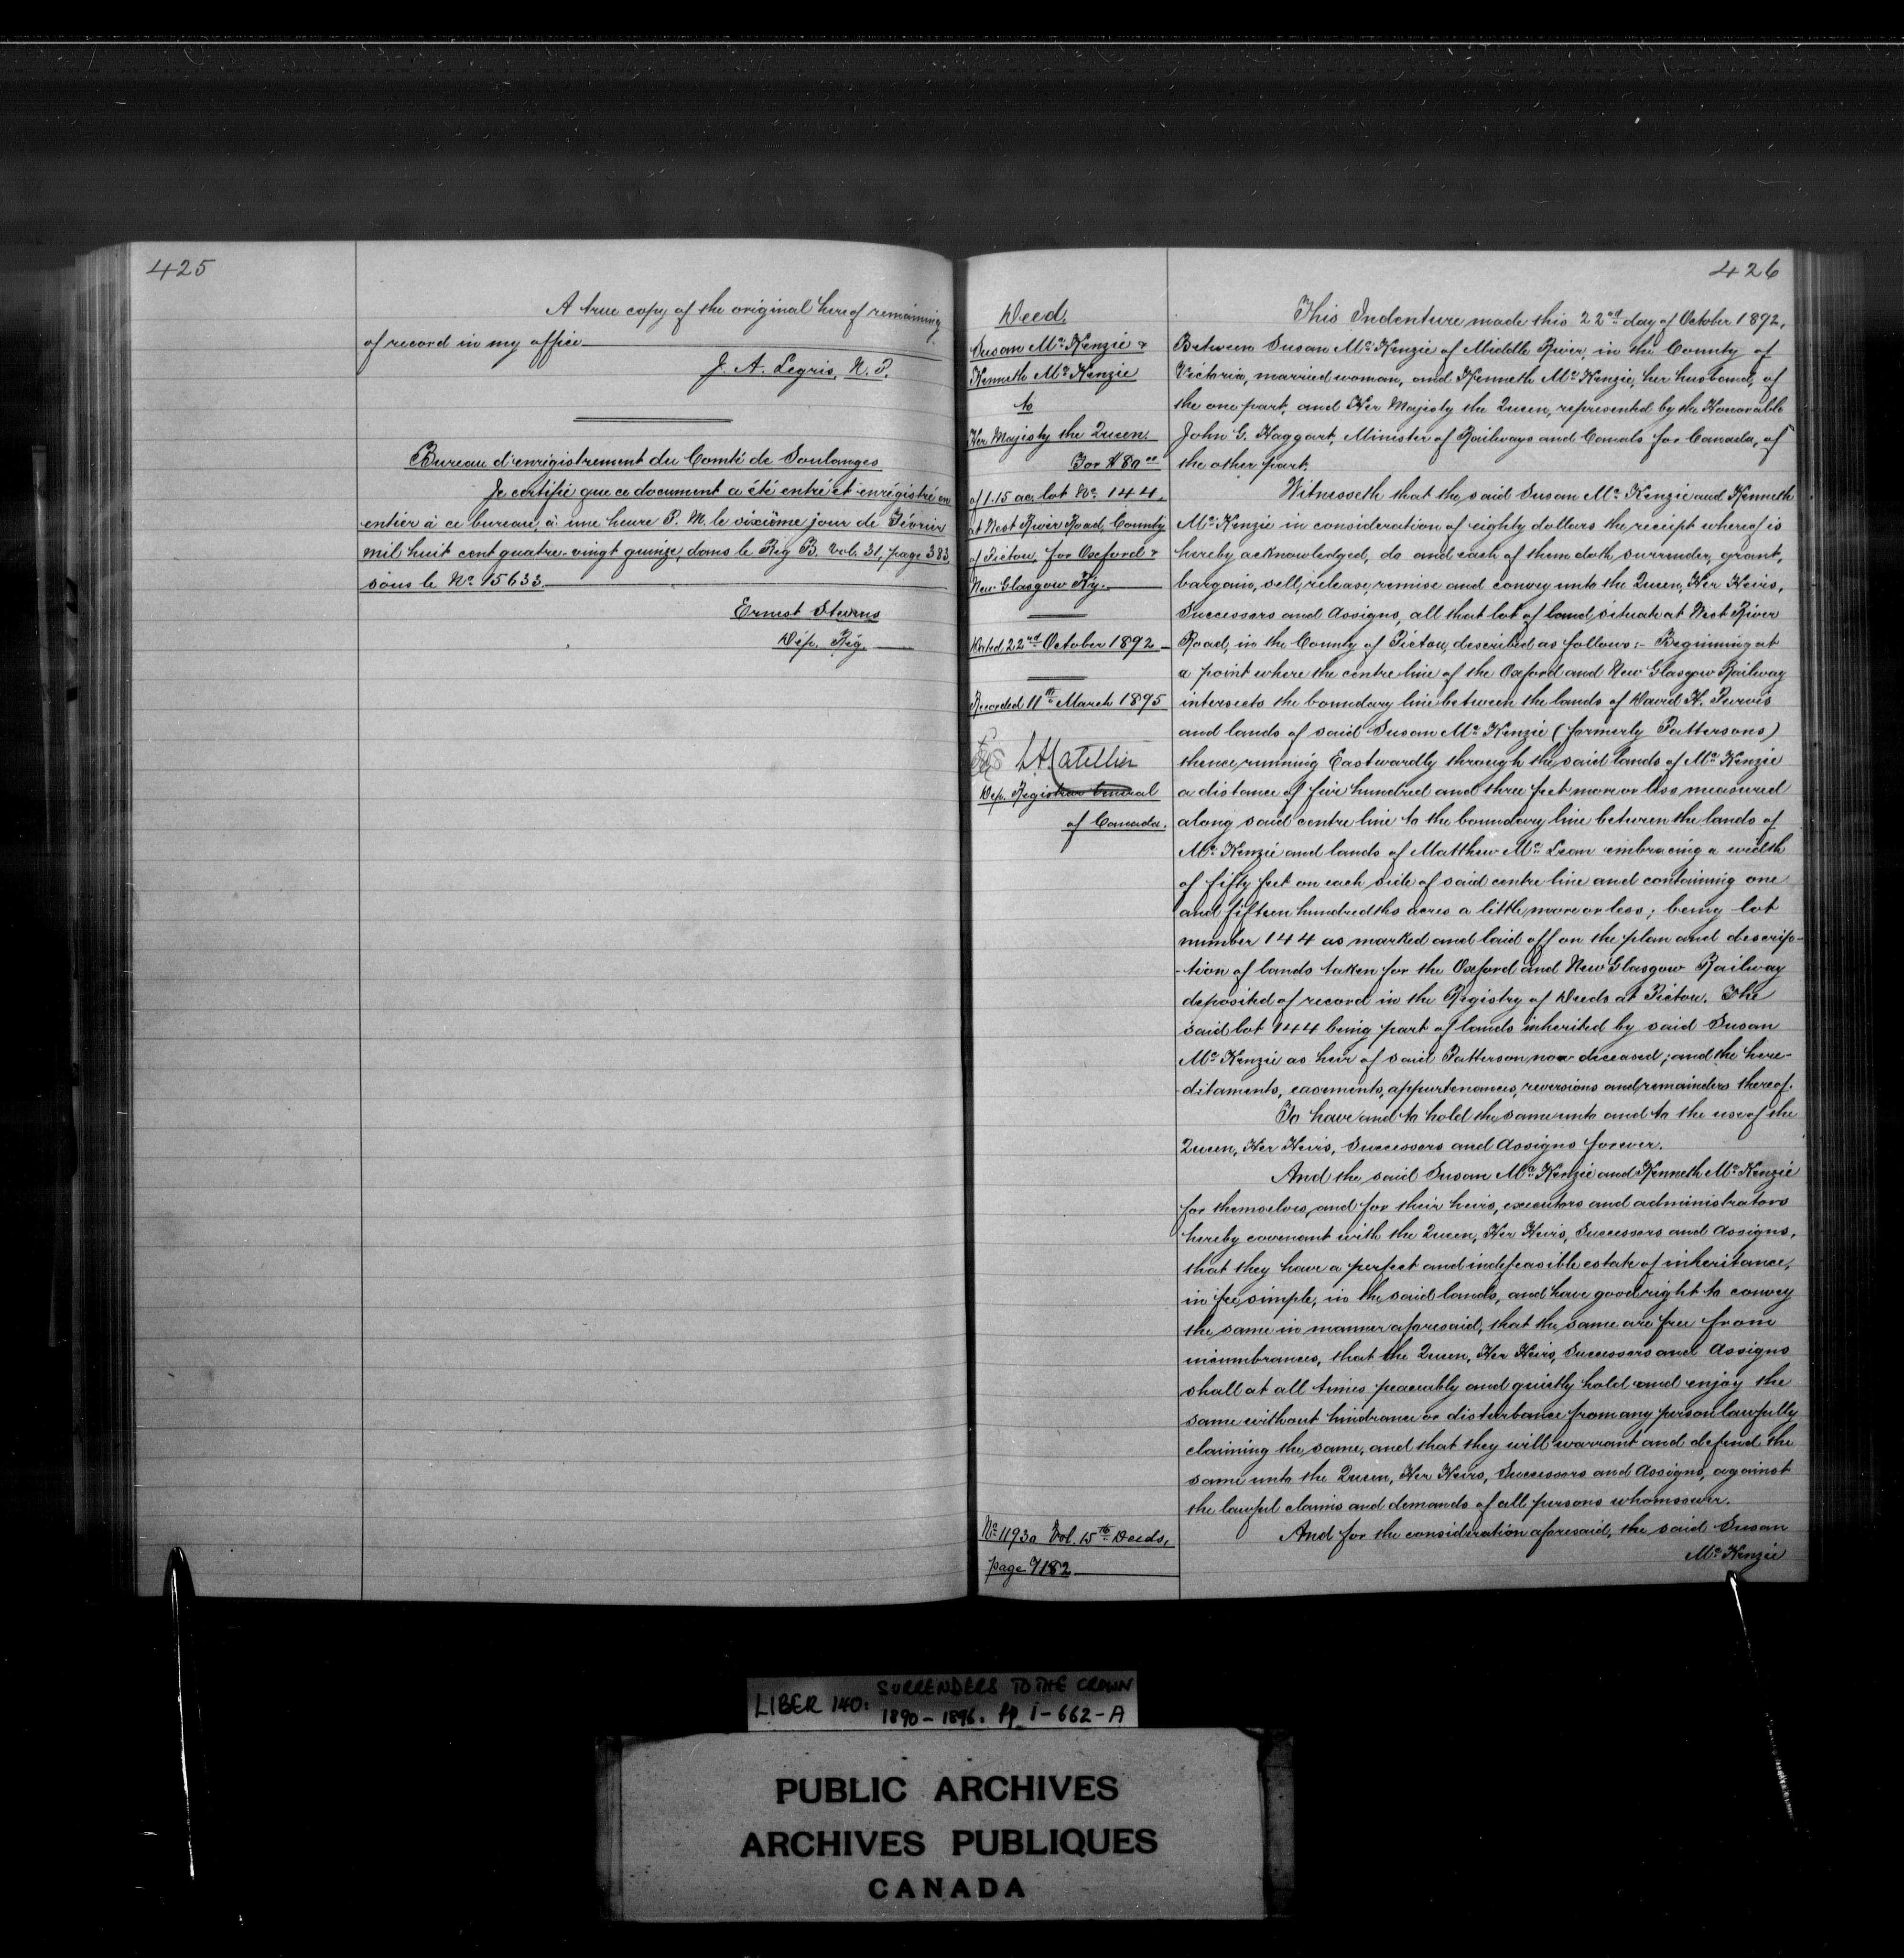 425
A true copy of the original hereof remaining
of record in my office
J. A. Legris, N. P.
Bureau d'enrégistrement du Comté de Soulanges
Je certifie que ce document a été entré et enrégistré en
entier à ce bureau, à une heure P. M. le sixième jour de Février
mil huit cent quatre-vingt quinze, dans le Reg B. Vol. 31, page 383
sous le No. 15633
Ernest Stevens
Dép. Rég.
426
Deed.
Susan Mc Kenzie &
Kenneth Mc Kenzie
to
Her Majesty the Queen.
For $80 00
of 1.15 ac. lot No. 144,
at West River Road, County
of Pictou, for Oxford &
New Glasgow Ry.
Dated 22nd October 1892
Recorded 11th March 1895
Dep. Registrar General
of Canada.
No. 11930 Vol. 15th Deeds,
page 7182
This Indenture made this 22nd day of October 1892,
Between Susan Mc Kenzie of Middle River, in the County of
Victoria, married woman, and Kenneth Mc Kenzie, her husband, of
the one part, and Her Majesty the Queen, represented by the Honorable
John G. Haggart, Minister of Railways and Canals for Canada, of
the other part.
Witnesseth that the said Susan Mc Kenzie and Kenneth
Mc Kenzie in consideration of eighty dollars the receipt whereof is
hereby acknowledged, do and each of them doth, surrender, grant,
bargain, sell, release, remise and convey unto the Queen, Her Heirs,
Successors and Assigns, all that lot of land, situate at West River
Road, in the County of Pictou, described as follows:- Beginning at
a point where the centre line of the Oxford and New Glasgow Railway
intersects the boundary line between the lands of David H. Purvis
and lands of said Susan Mc Kenzie (formerly Pattersons)
thence running Eastwardly through the said lands of Mc Kenzie
a distance of five hundred and three feet more or less measured
along said centre line to the boundary line between the lands of
Mc Kenzie and lands of Matthew Mc Lean embracing a width
of fifty feet on each side of said centre line and containing one
and fifteen hundredths acres a little more or less; being lot
number 144 as marked and laid off on the plan and descrip-
-tion of lands taken for the Oxford and New Glasgow Railway
deposited of record in the Registry of Deeds at Pictou. The
said lot 144 being part of lands inherited by said Susan
Mc Kenzie as heir of said Patterson now deceased; and the here-
-ditaments, easements, appurtenances, reversions and remainders thereof.
To have and to hold the same unto and to the use of the
Queen, Her Heirs, Successors and Assigns forever.
And the said Susan Mc Kenzie and Kenneth Mc Kenzie
for themselves, and for their heirs, executors and administrators
hereby covenant with the Queen, Her Heirs, Successors and Assigns,
that they have a perfect and indefeasible estate of inheritance,
in fee simple, in the said lands, and have good right to convey
the same in manner aforesaid, that the same are free from
incumbrances, that the Queen, Her Heirs, Successors and Assigns
shall at all times peaceably and quietly hold and enjoy the
same without hindrance or disturbance from any person lawfully
claiming the same, and that they will warrant and defend the
same unto the Queen, Her Heirs, Successors and Assigns, against
the lawful claims and demands of all persons whomsoever.
And for the consideration aforesaid, the said Susan
Mc Kenzie
LIBER 140: SURRENDERS TO THE CROWN
1890-1896. pp I-662-A
PUBLIC ARCHIVES
ARCHIVES PUBLIQUES
CANADA